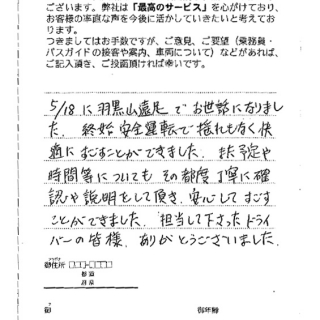 ございます。弊社は「最高のサービス」を心がけており、
お客様の率直な声を今後に活かしていきたいと考えてお
ります。
つきましてはお手数ですが、ご意見、ご要望（乗務員・
バスガイドの接客や案内、車両について）などがあれば、
ご記入頂き、ご投函頂ければ幸いです。
5/18に羽黒山遠足でお世話になりまし
た。終始安全運転で揺れもなく快
適にすごすことができました。また予定や
時間等についてもその都度丁寧に確
認や説明をして頂き、安心してすごす
ことができました。担当して下さったドライ
バーの皆様、ありがとうございました。
御住所 〒
都道
府県
御年齢